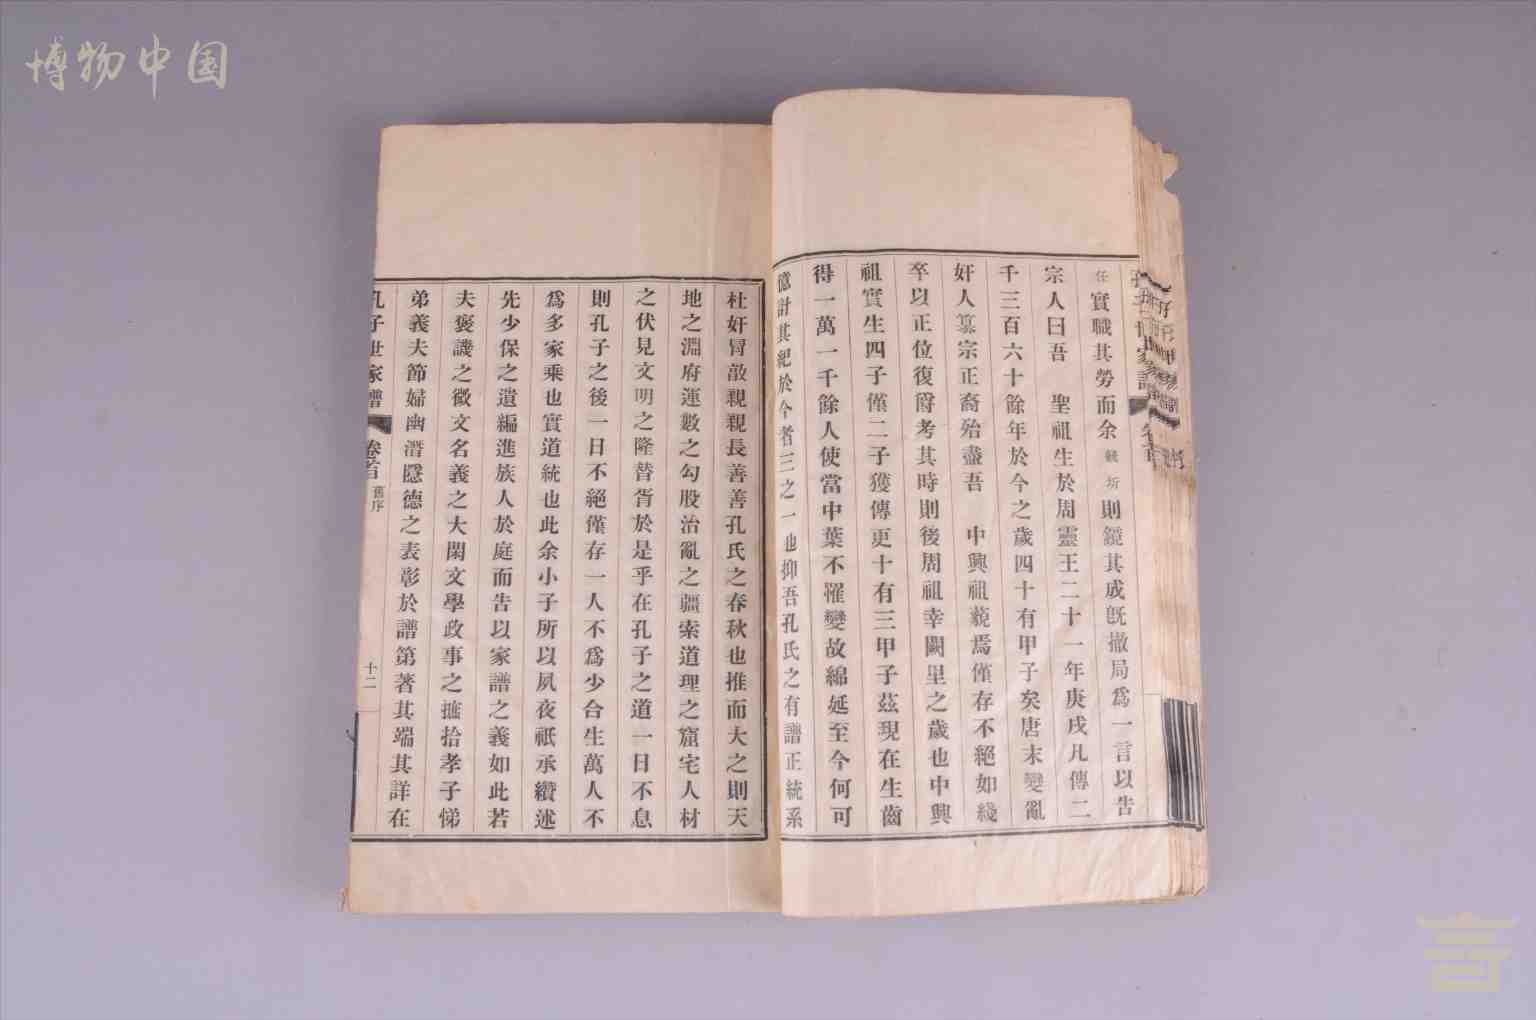 博物中国
任實職其勞而余毓圻則鏡其成旣撤局爲一言以告
宗人曰吾 聖祖生於周靈王二十一年庚戌凡傳二
千三百六十餘年於今之歲四十有甲子矣唐末變亂
奸人篡宗正裔殆盡吾 中興祖藐焉僅存不絕如綫
卒以正位復爵考其時則後周祖幸闕里之歲也中興
祖實生四子僅二子獲傳更十有三甲子茲現在生齒
得一萬一千餘人使當中葉不罹變故綿延至今何可
億計其紀於今者三之一也抑吾孔氏之有譜正統系
杜奸冐敨親親長長善善孔氏之春秋也推而大之則天
地之淵府運數之勾股治亂之疆索道理之窟宅人材
之伏見文明之隆替胥於是乎在孔子之道一日不息
則孔子之後一日不絕僅存一人不爲少合生萬人不
爲多家乘也實道統也此余小子所以夙夜祇承纘述
先少保之遺編進族人於庭而告以家譜之義如此若
夫褒譏之微文名義之大閑文學政事之摭拾孝子悌
弟義夫節婦幽潛隱德之表彰於譜第著其端其詳在
孔子世家譜 卷首 舊序 十二